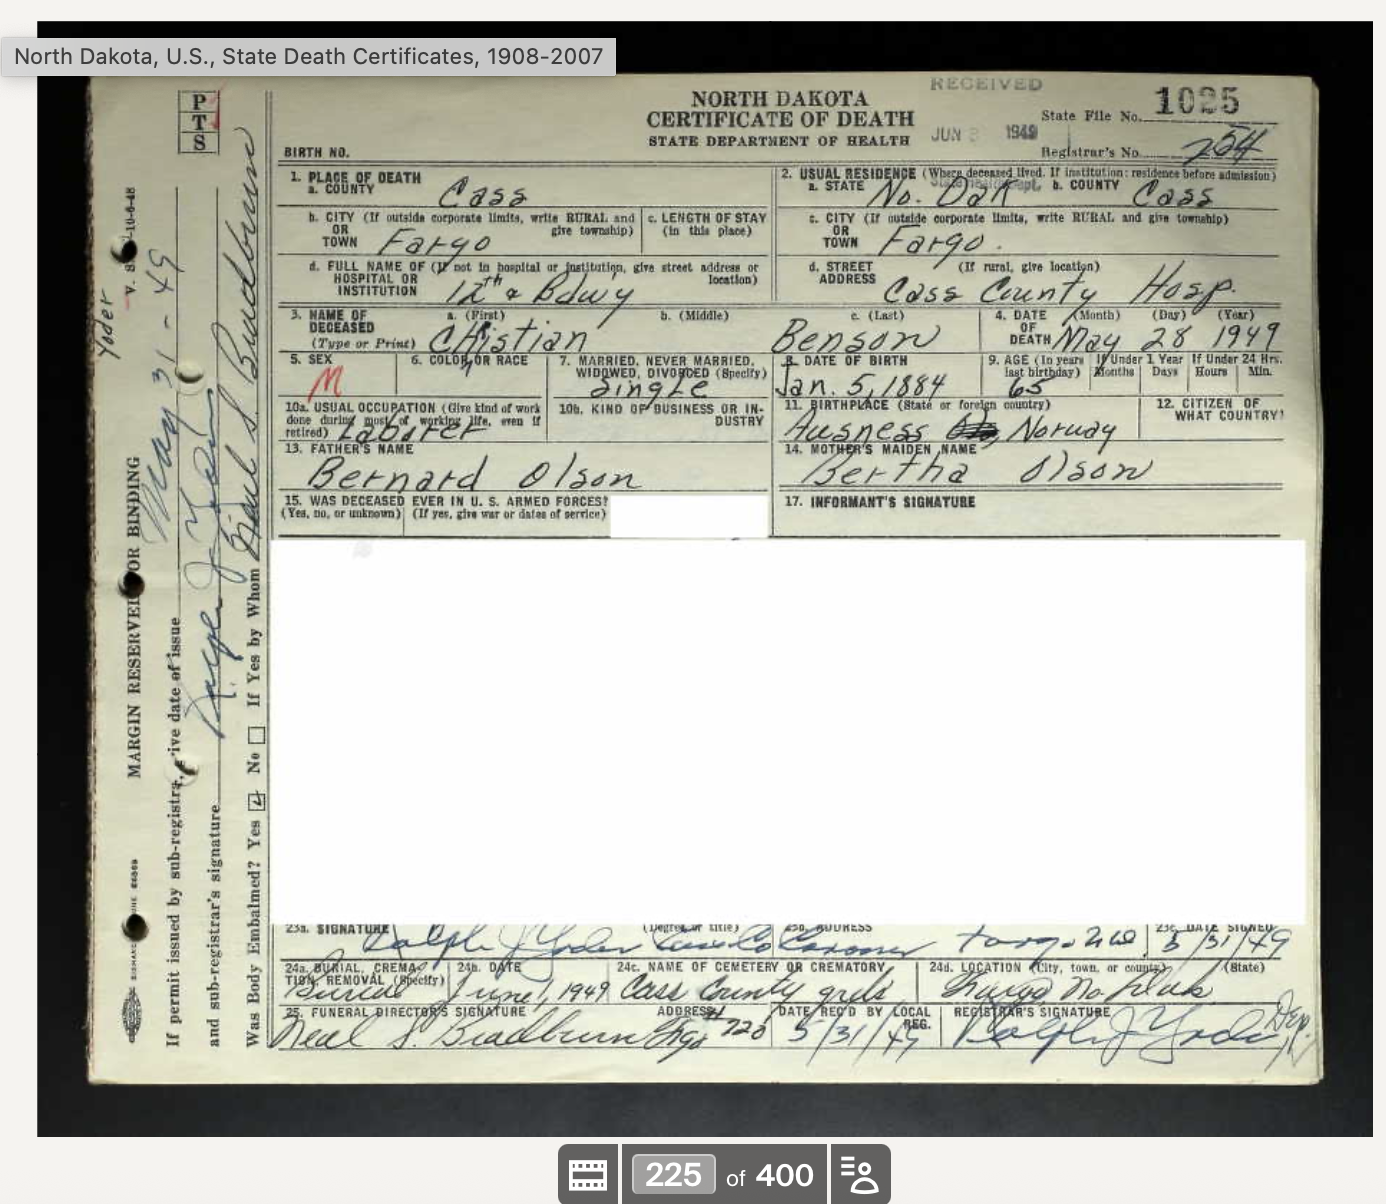 North Dakota, U.S., State Death Certificates, 1908-2007
PTS
RECEIVED
NORTH DAKOTA
CERTIFICATE OF DEATH
STATE DEPARTMENT OF HEALTH
JUN 1949
State File No. 1025
Registrar's No. 254
BIRTH NO.
1. PLACE OF DEATH
a. COUNTY Cass
2. USUAL RESIDENCE (Where deceased lived. If institution: residence before admission)
a. STATE No. Dak b. COUNTY Cass
b. CITY (If outside corporate limits, write RURAL and give township) OR TOWN Fargo
c. LENGTH OF STAY (in this place)
c. CITY (If outside corporate limits, write RURAL and give township) OR TOWN Fargo.
d. FULL NAME OF (If not in hospital or institution, give street address or location) HOSPITAL OR INSTITUTION 12th & Bdwy
d. STREET ADDRESS (If rural, give location) Cass County Hosp.
3. NAME OF DECEASED (Type or Print)
a. (First) Christian b. (Middle) c. (Last) Benson
4. DATE OF DEATH (Month) (Day) (Year) May 28 1949
5. SEX M
6. COLOR OR RACE
7. MARRIED, NEVER MARRIED, WIDOWED, DIVORCED (Specify) Single
8. DATE OF BIRTH Jan. 5, 1884
9. AGE (In years last birthday) 65 If Under 1 Year Months Days If Under 24 Hrs. Hours Min.
10a. USUAL OCCUPATION (Give kind of work done during most of working life, even if retired) Laborer
10b. KIND OF BUSINESS OR INDUSTRY
11. BIRTHPLACE (State or foreign country) Ausness Norway
12. CITIZEN OF WHAT COUNTRY?
13. FATHER'S NAME Bernard Olson
14. MOTHER'S MAIDEN NAME Bertha Olson
15. WAS DECEASED EVER IN U. S. ARMED FORCES?
(Yes, no, or unknown) (If yes, give war or dates of service)
17. INFORMANT'S SIGNATURE
23a. SIGNATURE (Degree or title) Ralph J Yoder Cass Co Coroner
23b. ADDRESS
23c. DATE SIGNED 5/31/49
24a. BURIAL, CREMATION, REMOVAL (Specify) Burial
24b. DATE June 1, 1949
24c. NAME OF CEMETERY OR CREMATORY Cass County grds
24d. LOCATION (City, town, or county) (State) Fargo No Dak
25. FUNERAL DIRECTOR'S SIGNATURE Neal S. Bradburn
ADDRESS Fgo #720
DATE REC'D BY LOCAL REG. 5/31/49
REGISTRAR'S SIGNATURE Ralph J Yoder Dep.
Yoder
10-6-48
MARGIN RESERVED FOR BINDING
If permit issued by sub-registrar, give date of issue May 31 - 49
and sub-registrar's signature Ralph J Yoder
Was Body Embalmed? Yes No If Yes by Whom Neal S. Bradburn
225 of 400